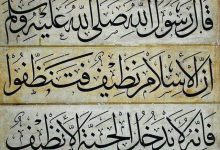 قال رسول الله صلى الله عليه وسلم
إن الإسلام نظيف فتنظفوا
فإنه لا يدخل الجنة إلا نظيف